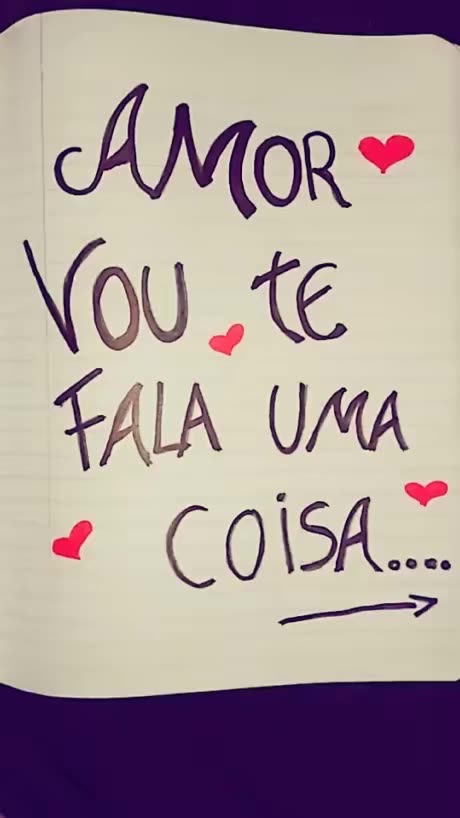 AMOR
VOU TE
FALA UMA
COISA....